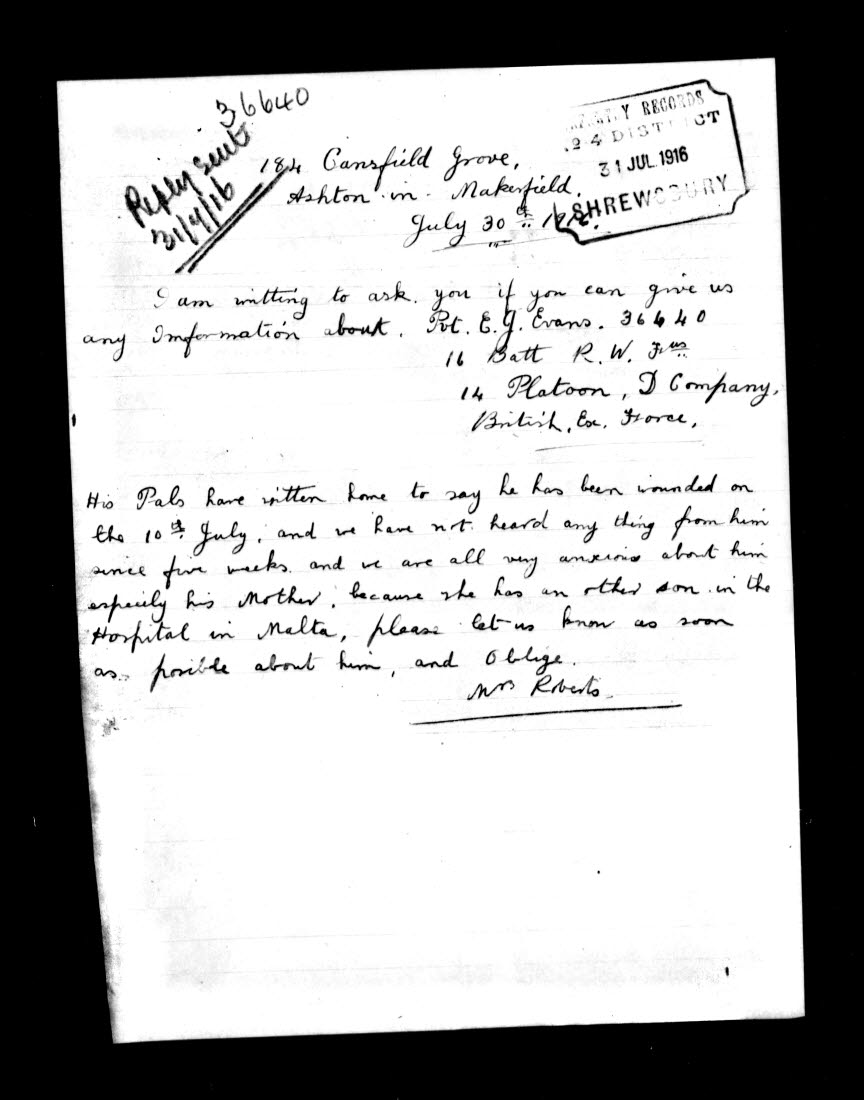 36640
Reply sent
31/7/16
INFANTRY RECORDS
24 DISTRICT
31 JUL 1916
SHREWSBURY
184 Cansfield Grove,
Ashton-in-Makerfield.
July 30th 1916.
I am writting to ask you if you can give us
any Imformation about. Pvt. E. J. Evans. 36640
16 Batt R. W. Fus
14 Platoon, D Company,
British, Ex. Force,
His Pals have written home to say he has been wounded on
the 10th July, and we have not heard any thing from him
since five weeks and we are all very anxious about him
especily his Mother, because she has an other son in the
Hospital in Malta, please let us know as soon
as posible about him, and Oblige.
Mrs Roberts